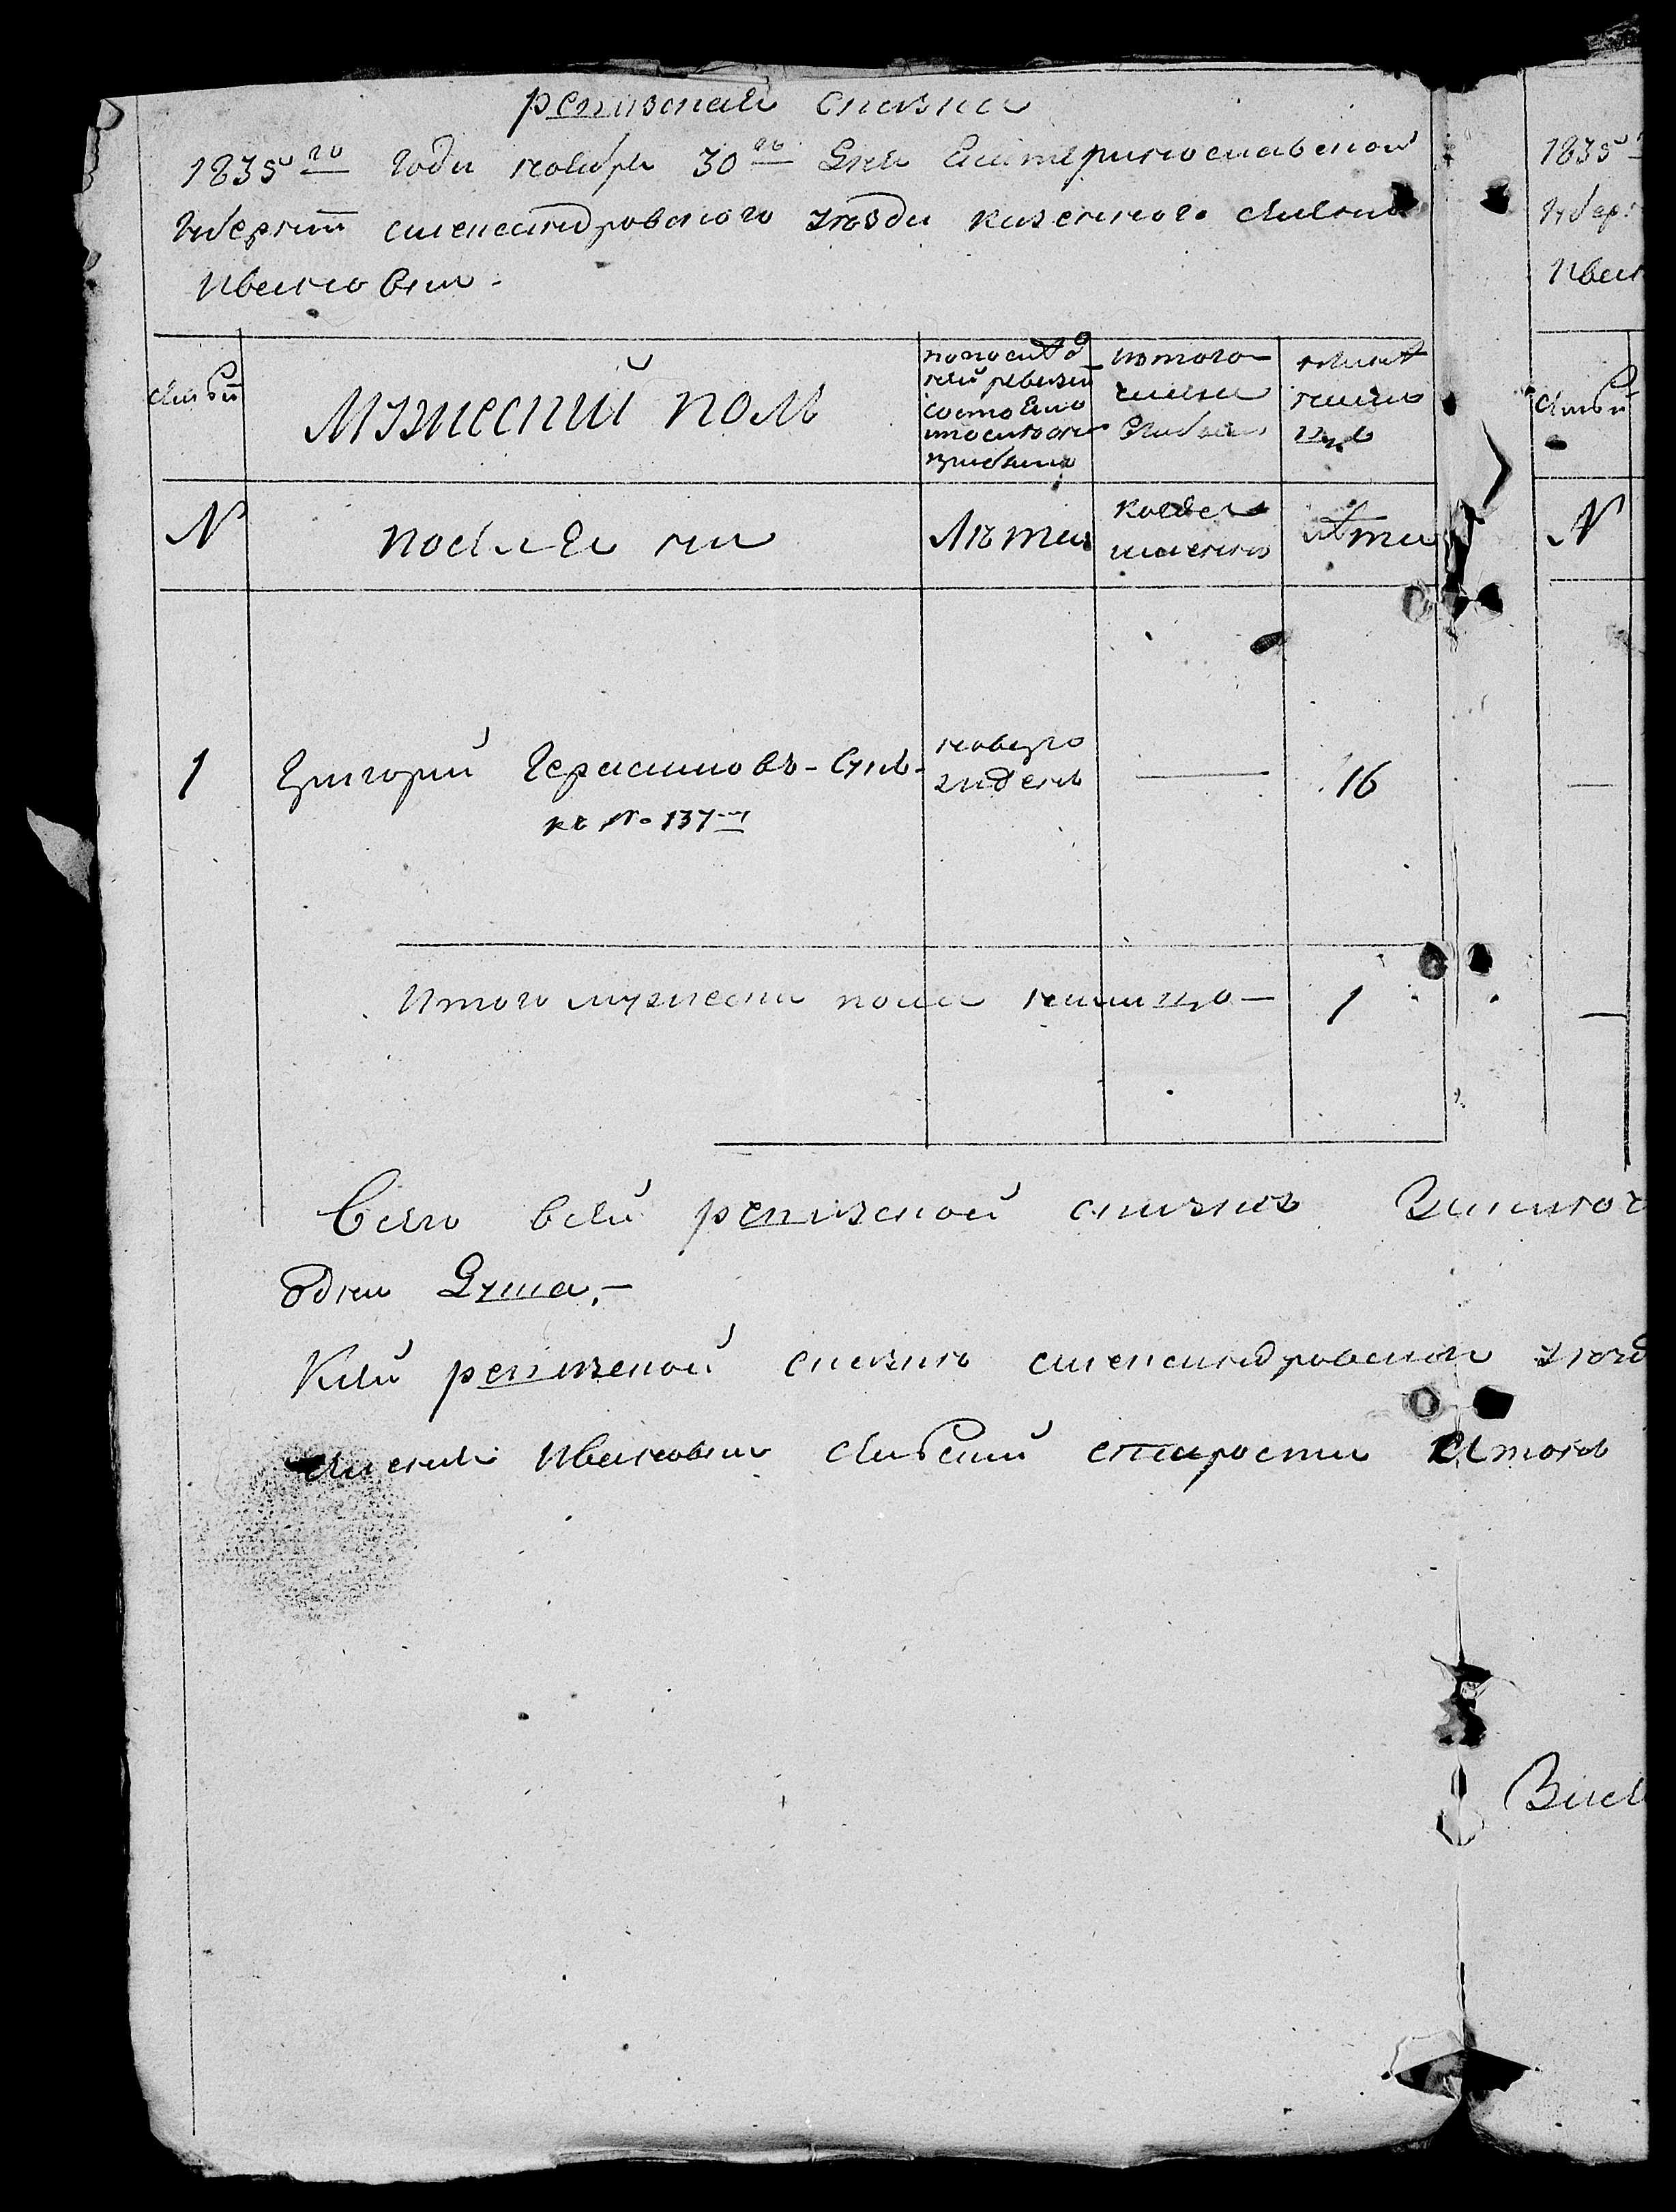 ревизская сказка
1835го года ноября 30го дня Екатеринославской
губернии александровского уѣзда казенного селения
Ивановки.
семьи
Мужеский полъ
по послѣд
ней ревизіи
состояло
и послѣ оной
прибыло
изъ того
числа
выбыло
нынѣ
на лицо
N
поселяни
Лѣта
когда
имянно
лѣта
1
Григорий Герасимовъ Сукъ
къ No 137му
новорo
жденъ
—
16
Итого мужеска пола на лицо —
1
Всего в сей ревизской сказкѣ Записано
Одна Душа. —
К сей ревизской сказкѣ александровского уѣзд
селения Ивановки сельский староста Антонъ
1835
губер
Иван
семьи
N
—
—